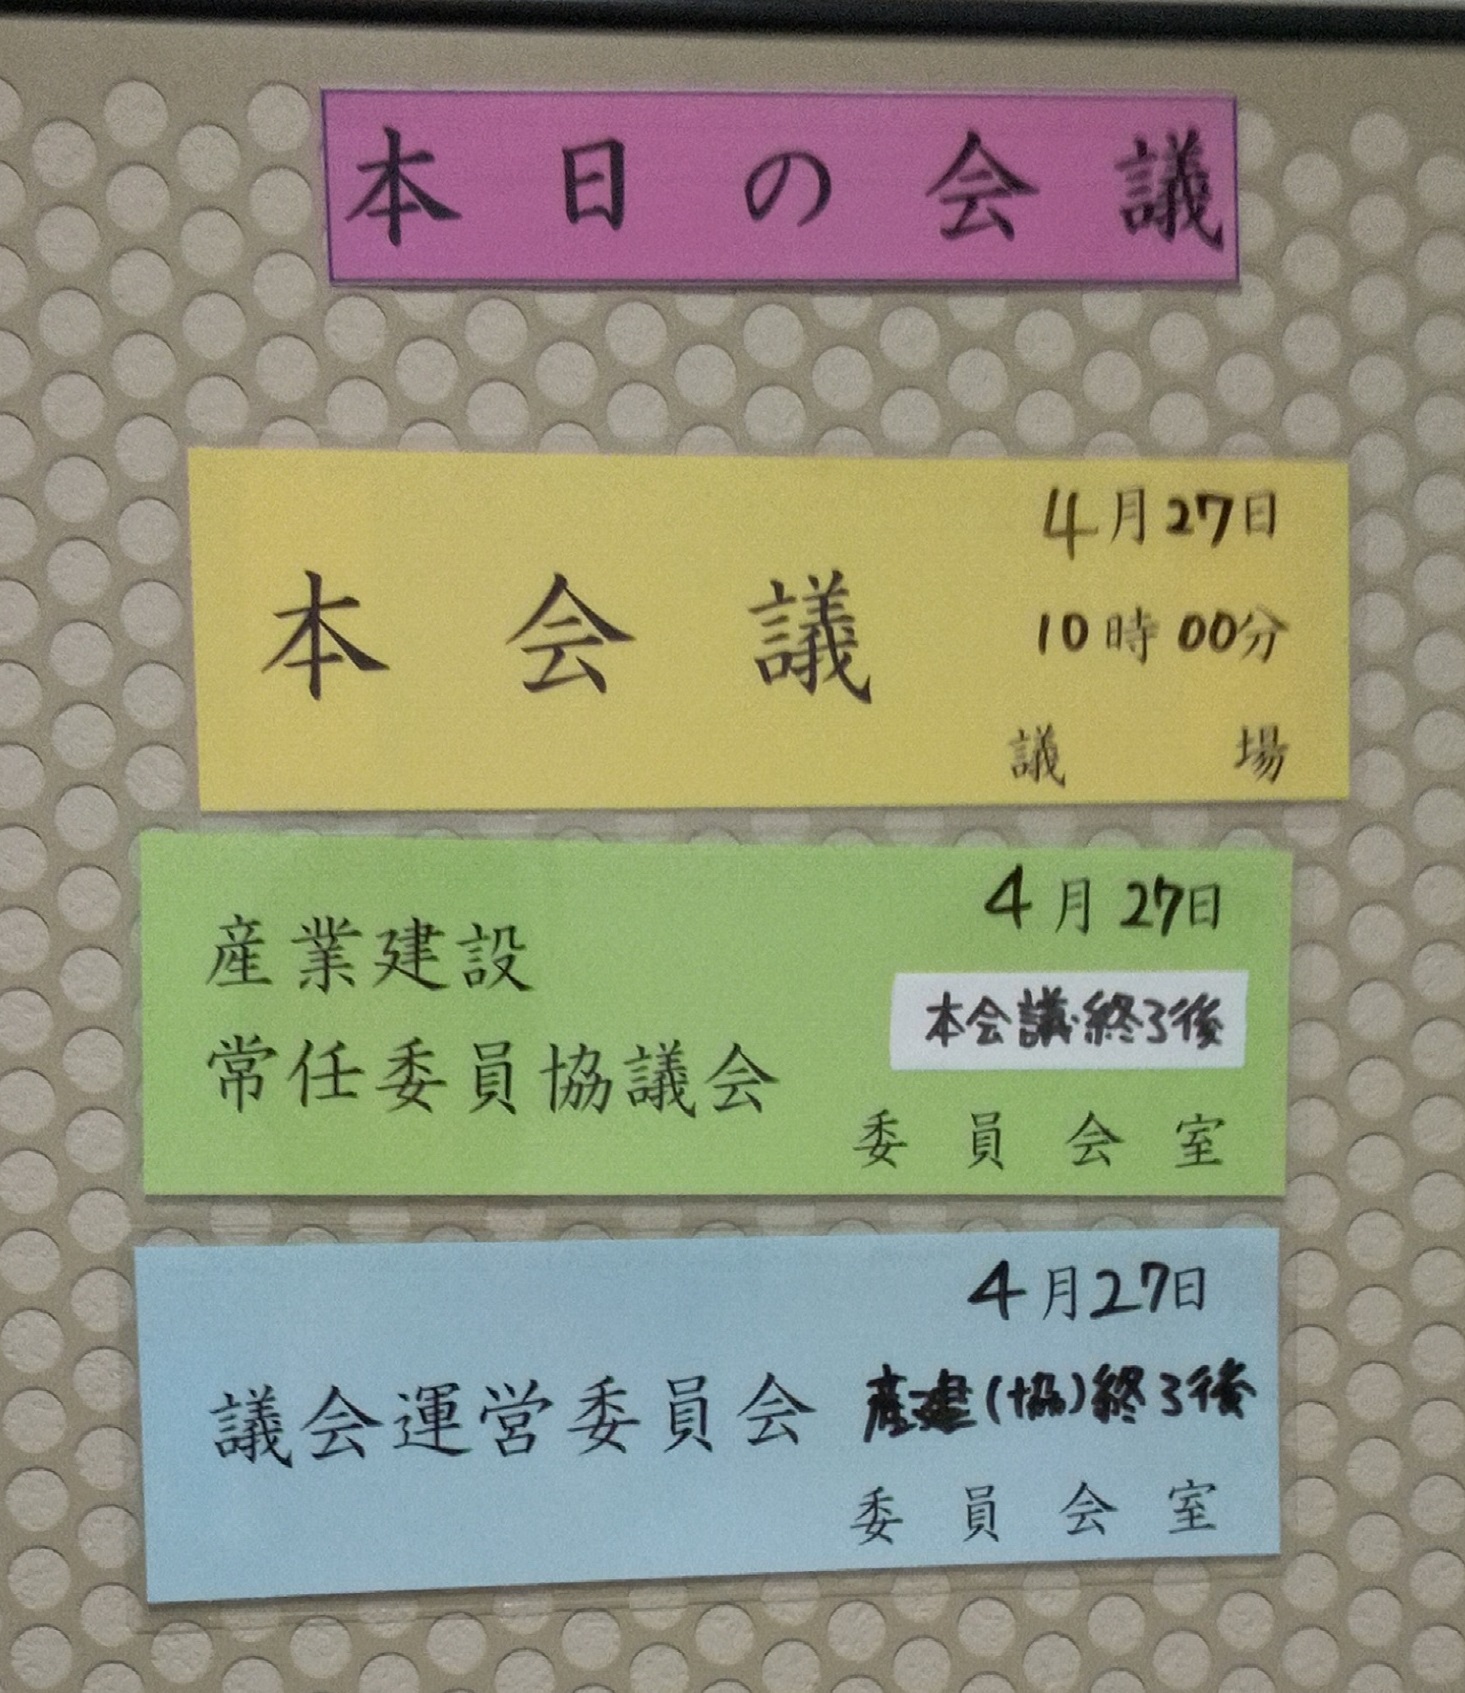 本日の会議
本会議
4月27日
10時00分
議場
産業建設
常任委員協議会
4月27日
本会議終了後
委員会室
議会運営委員会
4月27日
産建(協)終了後
委員会室